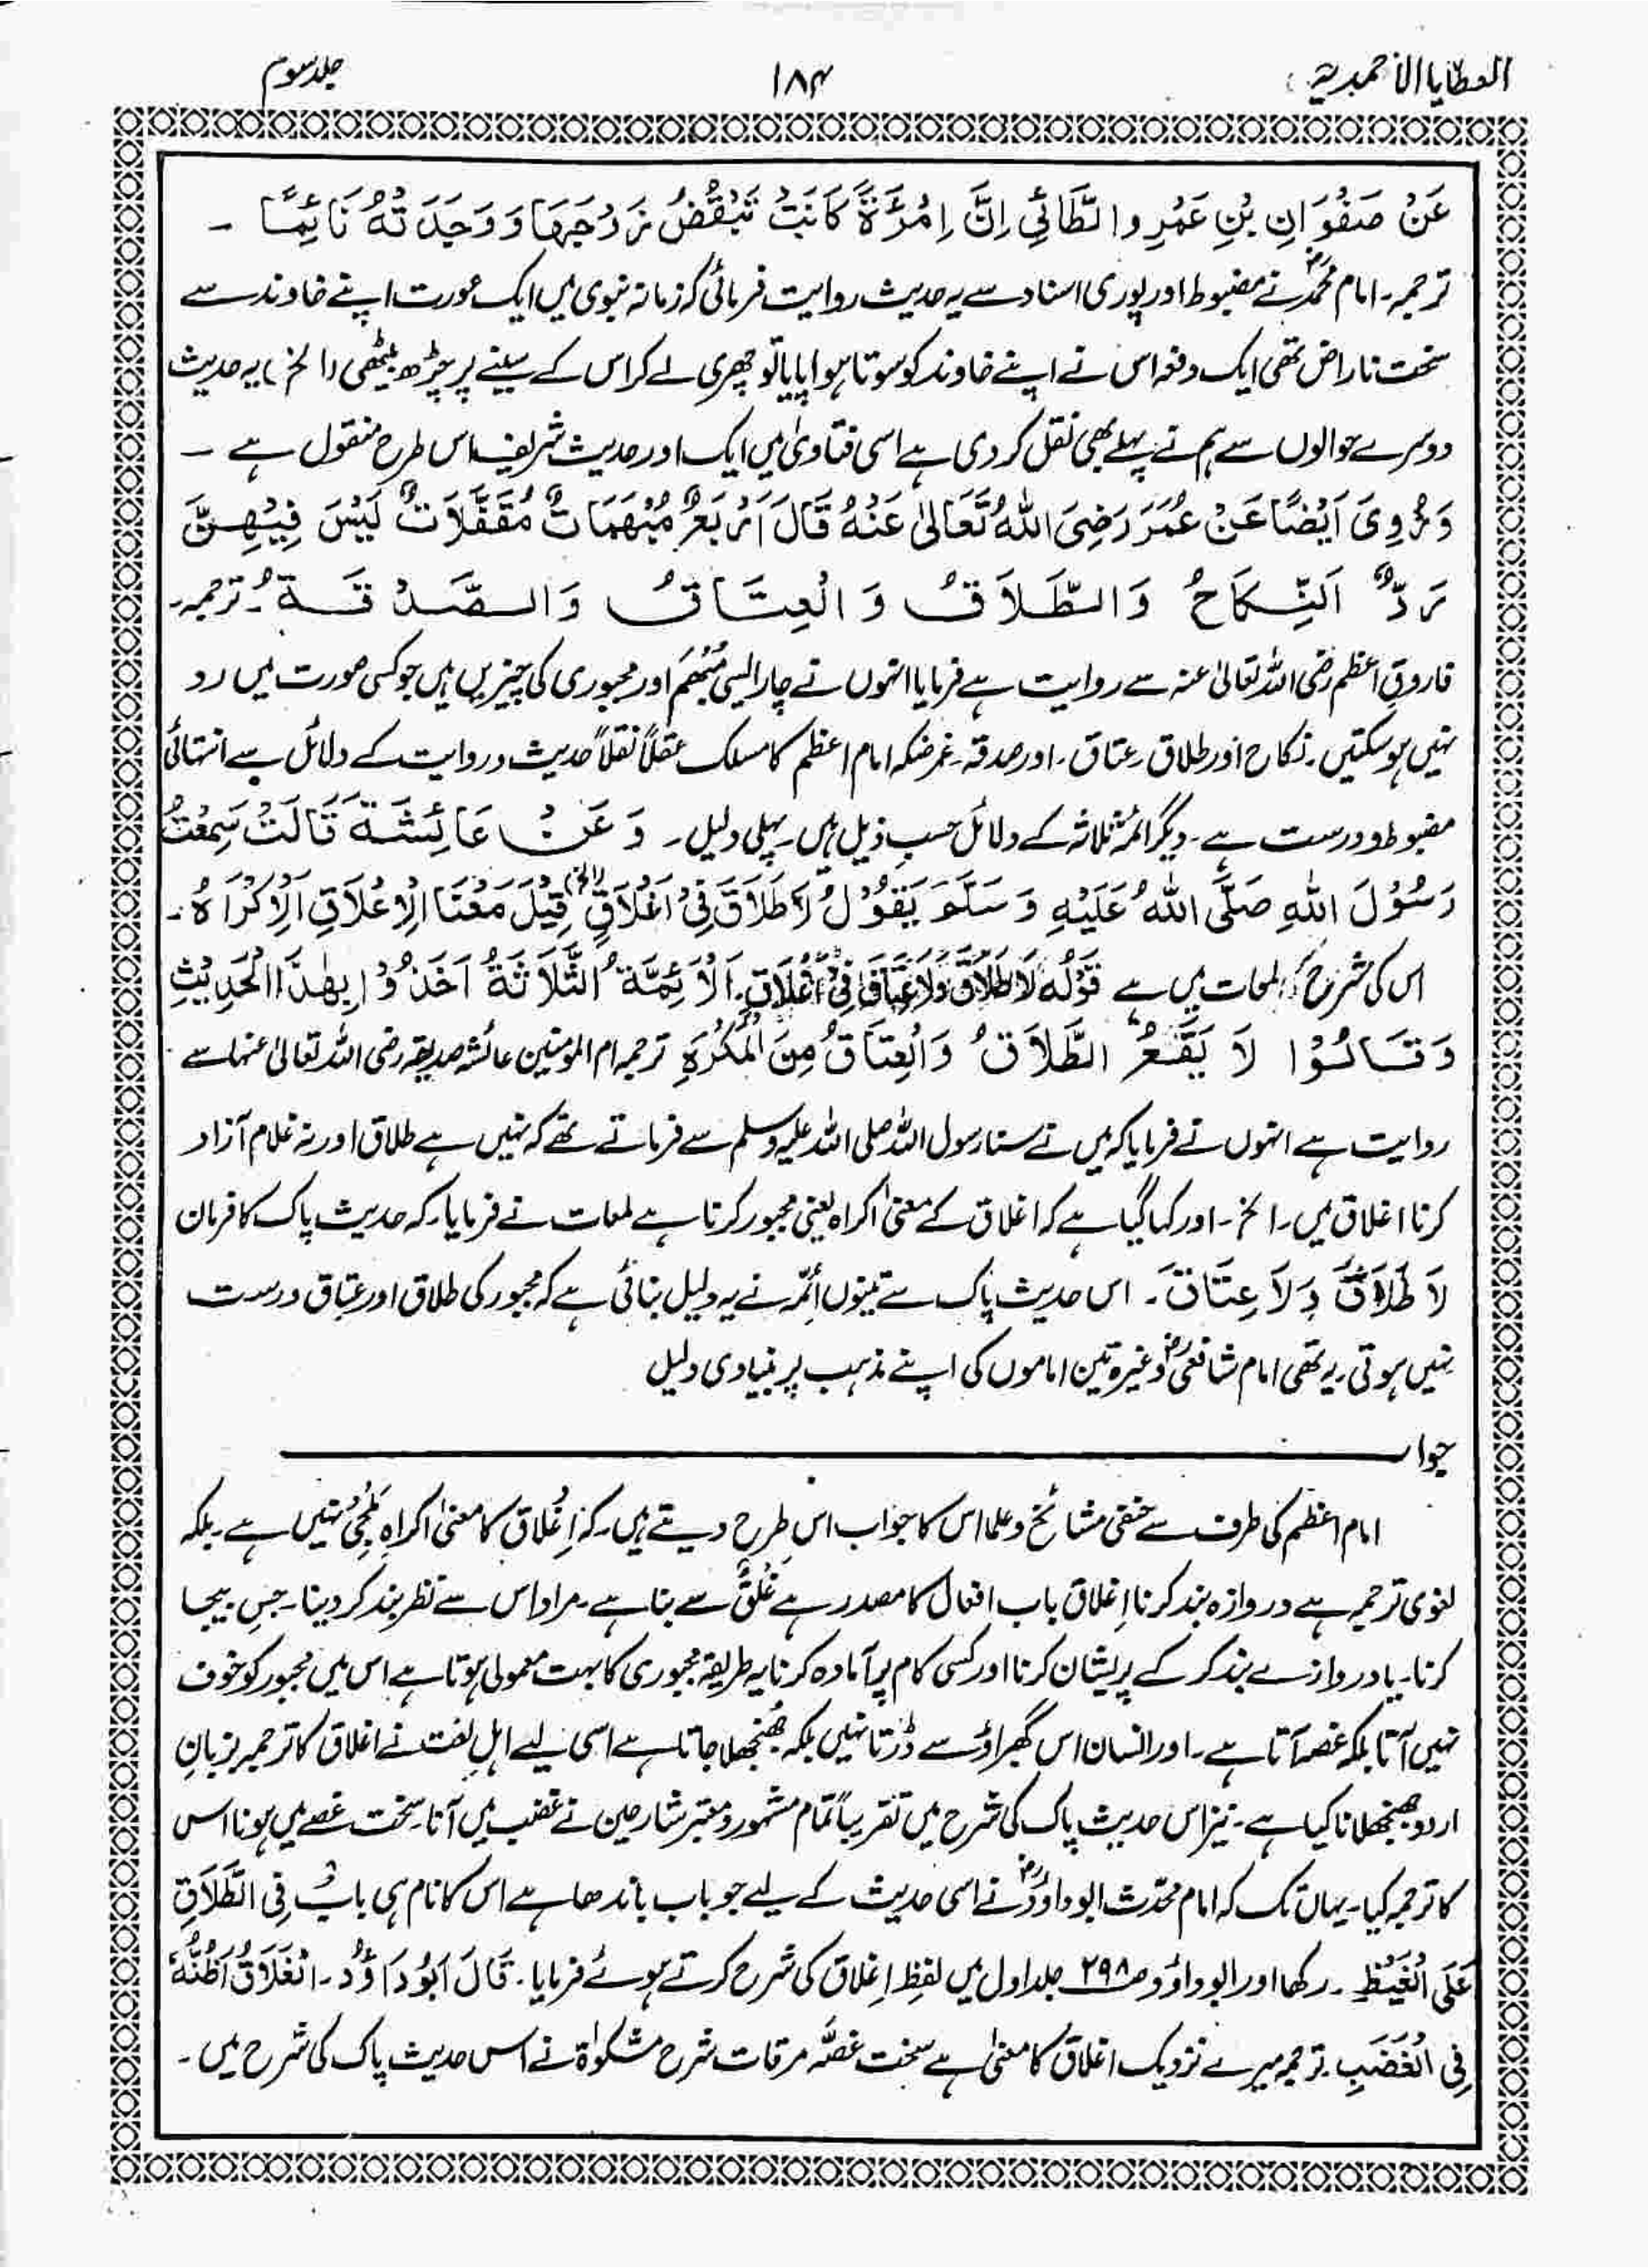 العطایا الاحمدیہ ۱۸۴ جلد سوم
عَنْ صَفْوَانِ بْنِ عَمْرِو الطَّائِي اِنَّ اِمْرَءَةً كَانَتْ تَبْغُضُ زَوْجَهَا وَ وَجَدَتْهُ نَائِمًا ۔
ترجمہ۔ امام محمدؒ نے مضبوط اور پوری اسناد سے یہ حدیث روایت فرمائی کہ زمانہ نبوی میں ایک عورت اپنے خاوند سے
سخت ناراض تھی ایک دفعہ اس نے اپنے خاوند کو سوتا ہوا پایا تو چھری لے کر اس کے سینے پر چڑھ بیٹھی (الخ) یہ حدیث
دوسرے حوالوں سے ہم نے پہلے بھی نقل کر دی ہے اسی فتاویٰ میں ایک اور حدیث شریف اس طرح منقول ہے ۔
وَ رُوِیَ اَيْضًا عَنْ عُمَرَ رَضِیَ اللهُ تَعَالیٰ عَنْهُ قَالَ اَرْبَعٌ مُبْهَمَاتٌ مُقَفَّلَاتٌ لَيْسَ فِيْهِنَّ
رَدٌّ اَلنِّكَاحُ وَ الطَّلَاقُ وَ الْعِتَاقُ وَ الصَّدْقَةُ ۔ ترجمہ۔
فاروقِ اعظم رضی اللہ تعالیٰ عنہ سے روایت ہے فرمایا انہوں نے چار ایسی مُبْہَم اور مجبوری کی چیزیں ہیں جو کسی صورت میں رد
نہیں ہوسکتیں۔ نکاح اور طلاق۔ عتاق۔ اور صدقہ۔ غرضکہ امام اعظم کا مسلک عقلاً نقلاً حدیث و روایت کے دلائل سے انتہائی
مضبوط و درست ہے۔ دیگر ائمہ ثلاثہ کے دلائل حسبِ ذیل ہیں۔ پہلی دلیل۔ وَ عَنْ عَائِشَةَ قَالَتْ سَمِعْتُ
رَسُوْلَ اللهِ صَلَّى اللهُ عَلَيْهِ وَ سَلَّمَ يَقُوْلُ لَا طَلَاقَ فِیْ اَغْلَاقٍ (الخ) قِيْلَ مَعْنَا الْاِغْلَاقِ اَلْاِكْرَاهُ ۔
اس کی شرح لمعات میں ہے قَوْلُهُ لَا طَلَاقَ وَلَا عِتَاقَ فِیْ اَغْلَاقٍ۔ اَلْاَئِمَّةُ الثَّلَاثَةُ اَخَذُوْا بِهٰذَا الْحَدِيْثِ
وَ قَالُوْا لَا يَقَعُ الطَّلَاقُ وَ الْعِتَاقُ مِنَ الْمُكْرَهِ ترجمہ ام المومنین عائشہ صدیقہ رضی اللہ تعالیٰ عنہا سے
روایت ہے انہوں نے فرمایا کہ میں نے سنا رسول اللہ صلی اللہ علیہ وسلم سے فرماتے تھے کہ نہیں ہے طلاق اور نہ غلام آزاد
کرنا اغلاق میں۔ الخ۔ اور کہا گیا ہے کہ اغلاق کے معنی اکراہ یعنی مجبور کرنا ہے لمعات نے فرمایا۔ کہ حدیث پاک کا فرمان
لَا طَلَاقَ وَ لَا عِتَاقَ ۔ اس حدیث پاک سے تینوں اَئِمّہ نے یہ دلیل بنائی ہے کہ مجبور کی طلاق اور عتاق درست
نہیں ہوتی۔ یہ تھی امام شافعیؒ وغیرہ تین اماموں کی اپنے مذہب پر بنیادی دلیل
جواب
امام اعظم کی طرف سے حنفی مشائخ و علما اس کا جواب اس طرح دیتے ہیں۔ کہ اِغْلاق کا معنیٰ اکراہِ مُلْجِیْ نہیں ہے۔ بلکہ
لغوی ترجمہ ہے دروازہ بند کرنا اِغلاق باب افعال کا مصدر ہے غَلْقٌ سے بنا ہے۔ مراد اس سے نظر بند کر دینا۔ حبسِ بیجا
کرنا۔ یا دروازے بند کر کے پریشان کرنا اور کسی کام پر آمادہ کرنا یہ طریقہ مجبوری کا بہت معمولی ہوتا ہے اس میں مجبور کو خوف
نہیں آتا بلکہ غصہ آتا ہے۔ اور انسان اس گھبراؤ سے ڈرتا نہیں بلکہ جُھنجھلا جاتا ہے اسی لیے اہلِ لغت نے اغلاق کا ترجمہ بزبانِ
اردو جھنجھلانا کیا ہے۔ نیز اس حدیث پاک کی شرح میں تقریباً تمام مشہور و معتبر شارحین نے غضب میں آنا۔ سخت غصے میں ہونا اس
کا ترجمہ کیا۔ یہاں تک کہ امام محدّث ابو داؤدؒ نے اسی حدیث کے لیے جو باب باندھا ہے اس کا نام ہی بابٌ فِی الطَّلَاقِ
عَلَی الْغَيْظِ ۔ رکھا اور ابو داؤد ص۲۹۸ جلد اول میں لفظِ اِغلاق کی شرح کرتے ہوئے فرمایا۔ قَالَ اَبُوْدَاوٗدَ۔ الْغَلَاقُ اَظُنُّهُ
فِی الْغَضَبِ ۔ ترجمہ میرے نزدیک اغلاق کا معنیٰ ہے سخت غصّہ مرقات شرح مشکوٰۃ نے اس حدیث پاک کی شرح میں ۔